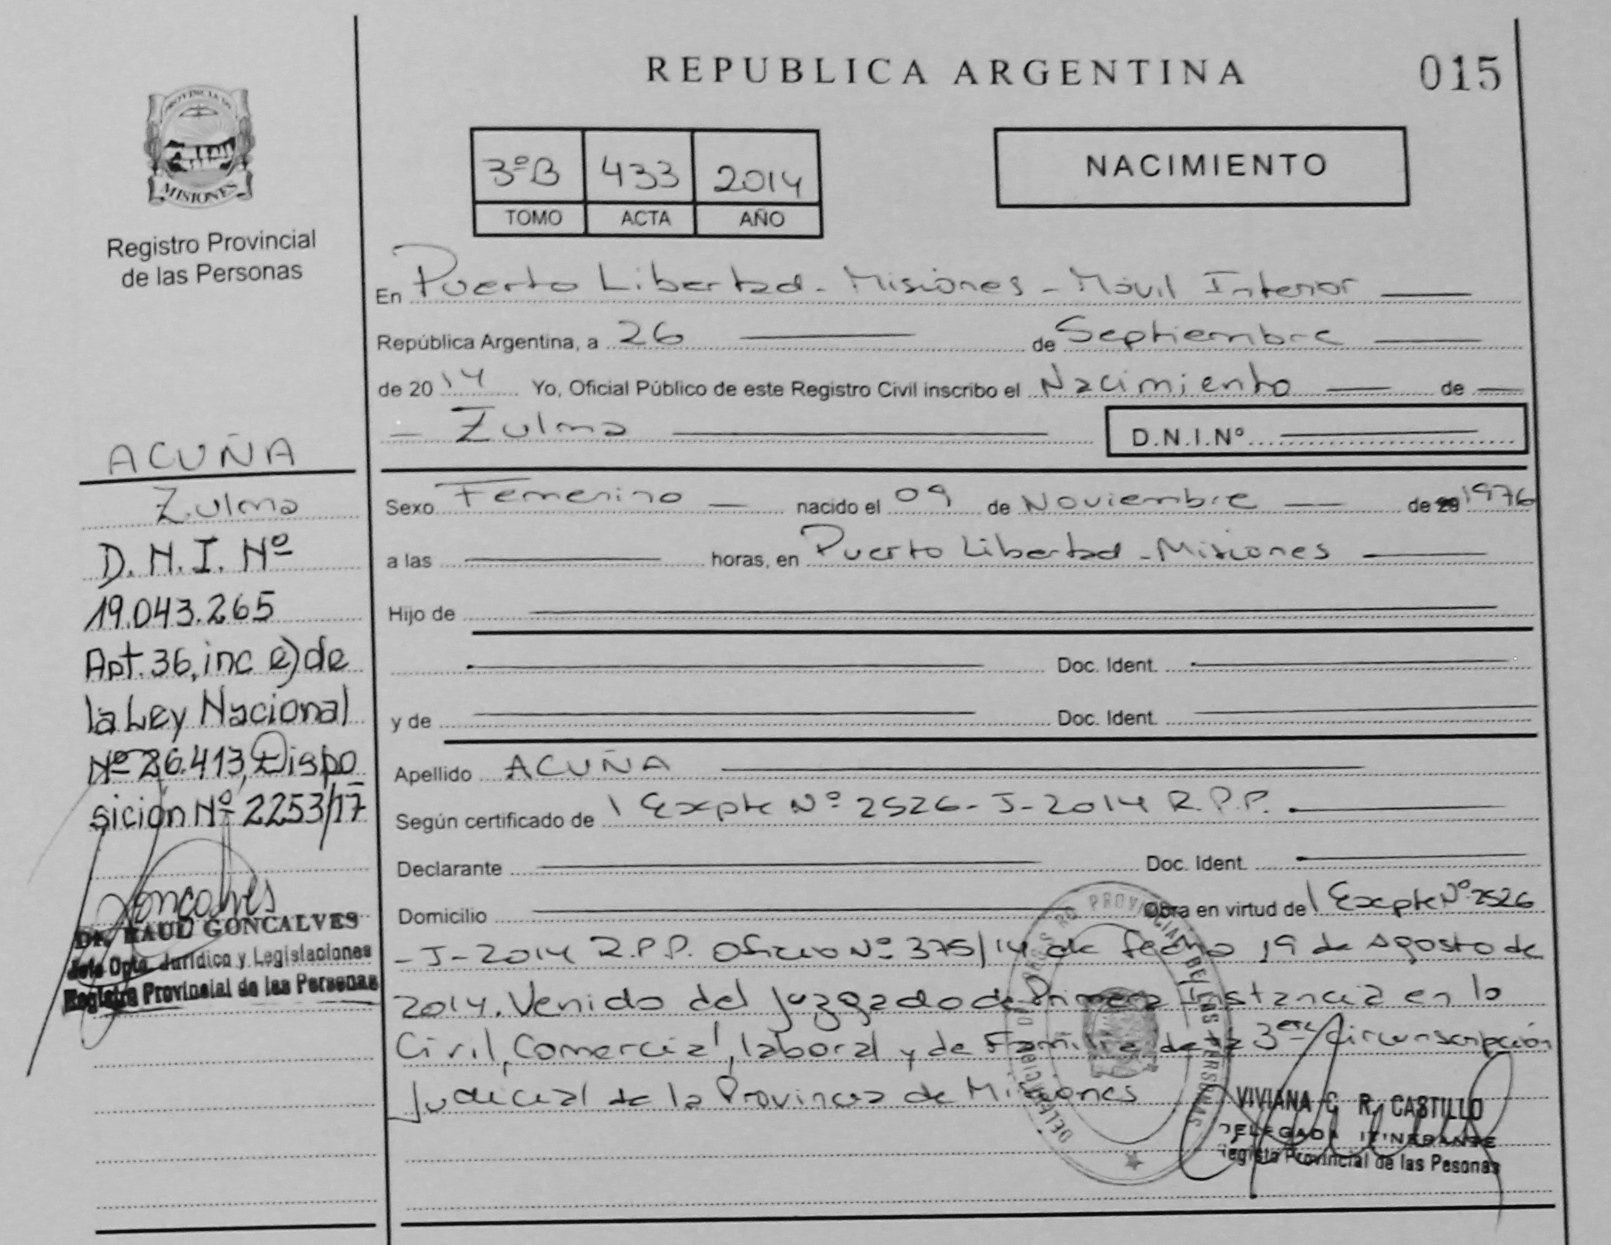 PROVINCIA DE
MISIONES
Registro Provincial
de las Personas
REPUBLICA ARGENTINA
015
3ºB 433 2014
TOMO ACTA AÑO
NACIMIENTO
En Puerto Libertad - Misiones - Móvil Interior
República Argentina, a 26 de Septiembre
de 2014 Yo, Oficial Público de este Registro Civil inscribo el Nacimiento de
Zulma D.N.I.Nº
Sexo Femenino nacido el 09 de Noviembre de 20 1976
a las horas, en Puerto Libertad - Misiones
Hijo de
Doc. Ident.
y de Doc. Ident.
Apellido ACUÑA
Según certificado de Expte Nº 2526-J-2014 R.P.P.
Declarante Doc. Ident.
Domicilio Obra en virtud de Expte Nº 2526
-J-2014 R.P.P. Oficio Nº 375/14 de fecha 19 de Agosto de
2014. Venido del Juzgado de Primera Instancia en lo
Civil, Comercial, laboral y de Familia de la 3era Circunscripción
Judicial de la Provincia de Misiones
VIVIANA C. R. CASTILLO
DELEGADA ITINERANTE
Registro Provincial de las Pesonas
ACUÑA
Zulma
D.N.I. Nº
19.043.265
Art. 36, inc e) de
la Ley Nacional
Nº 26.413, Dispo
sición Nº 2253/17
Goncalves
Dr. RAUL GONCALVES
Jefe Dpto. Jurídico y Legislaciones
Registro Provincial de las Personas